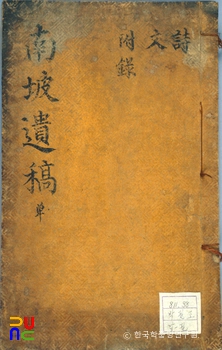 南坡遺稿 單
詩
文
附錄
© 한국학중앙연구원